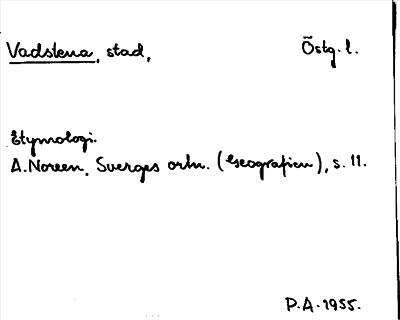 Vadstena, stad, Östg. l.
Etymologi.
A. Noreen, Sverges ortn. (Geografien), s. 11.
P.A. 1955.